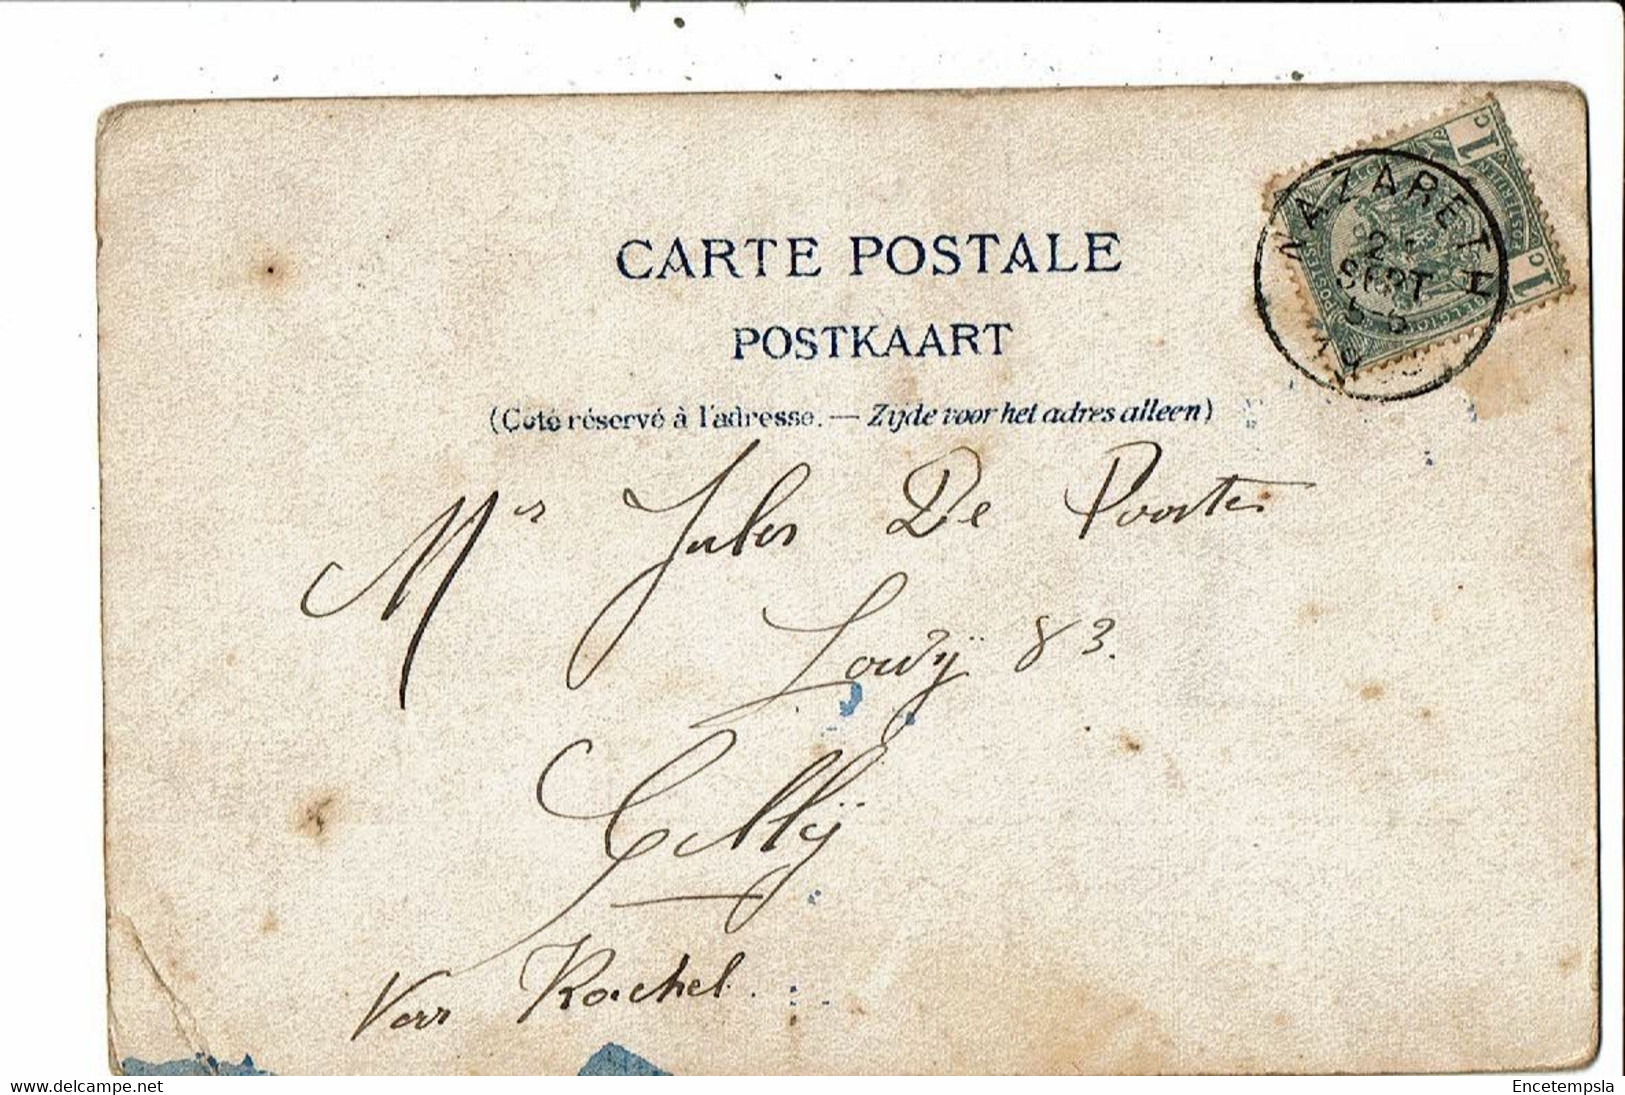 CARTE POSTALE
POSTKAART
(Coté réservé à l'adresse. — Zijde voor het adres alleen)
1c
1c
NAZARETH
2
SEPT
5-6
19
Mr Jules De Poorter
83.
Gillÿ
Rachel.
www.delcampe.net
Encetempsla